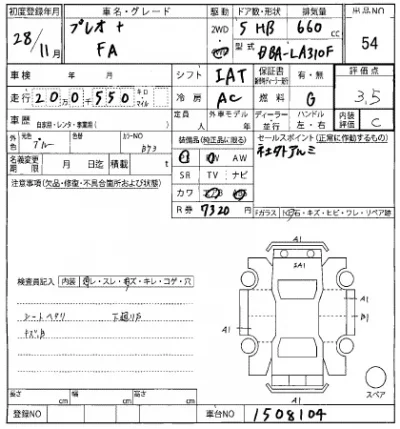 初度登録年月 車名・グレード 駆動 ドア数・形状 排気量 出品NO
28/11月 プレオ+ FA 2WD 5 HB 660 cc 54
型式 DBA-LA310F
車検 年 月 シフト IAT 保証書 有・無 評価点
走行 200千550 キロ マイル 冷房 AC 燃料 G 3.5
車歴 自家用・レンタ・事業用( ) 定員 人 外車モデル 年 ディーラー 並行 ハンドル 左・右 内装評価 C
外色 元色 ブルー カラーNO B73 装備品(純正品に限る) セールスポイント(正常に作動するもの)
名義変更期限 月 日迄 積載 t AW
社外アルミ
注意事項(欠品・修復・不具合箇所および状態) SR TV ナビ
カワ
R券 7320 円
Fガラス キズ・ヒビ・ワレ・リペア跡
A1
2A1
A1
A1
A1
検査員記入 内装 レ・スレ・キズ・キレ・コゲ・穴
シートヘタリ 下廻りサビ
キズ
スペア
長さ cm 幅 cm 高さ cm
登録NO 車台NO 1508104